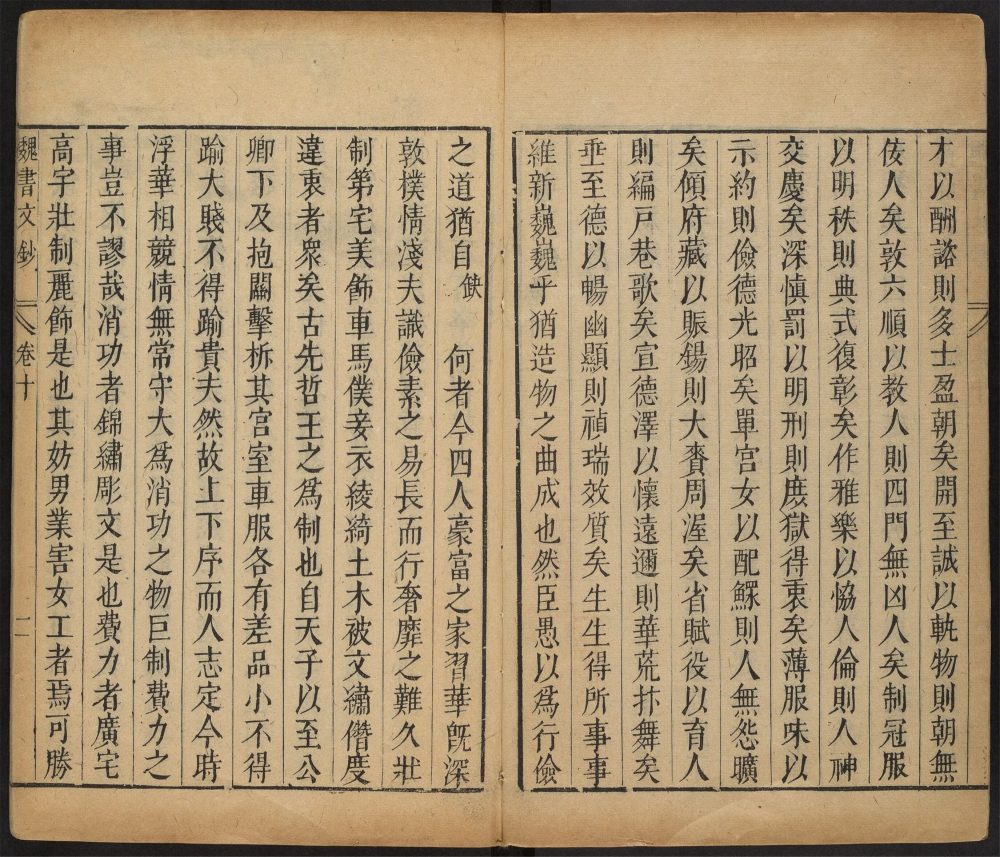 才以酬諮則多士盈朝矣開至誠以軌物則朝無
佞人矣敦六順以教人則四門無凶人矣制冠服
以明秩則典式復彰矣作雅樂以恊人倫則人神
交慶矣深慎罰以明刑則庶獄得衷矣薄服味以
示約則儉德光昭矣單宮女以配鰥則人無怨曠
矣傾府藏以賑錫則大賚周渥矣省賦役以育人
則編戸巷歌矣宣德澤以懷遠邇則華荒抃舞矣
垂至德以暢幽顯則禎瑞效質矣生生得所事事
維新巍巍乎猶造物之曲成也然臣愚以爲行儉
之道猶自缺 何者今四人豪富之家習華既深
敦樸情淺夫識儉素之易長而行奢靡之難久壯
制第宅美飾車馬僕妾衣綾綺土木被文繡僭度
違衷者衆矣古先哲王之爲制也自天子以至公
卿下及抱關擊柝其宮室車服各有差品小不得
踰大賤不得踰貴夫然故上下序而人志定今時
浮華相競情無常守大爲消功之物巨制費力之
事豈不謬哉消功者錦繡彫文是也費力者廣宅
高宇壯制麗飾是也其妨男業害女工者焉可勝
魏書文鈔 卷十 二